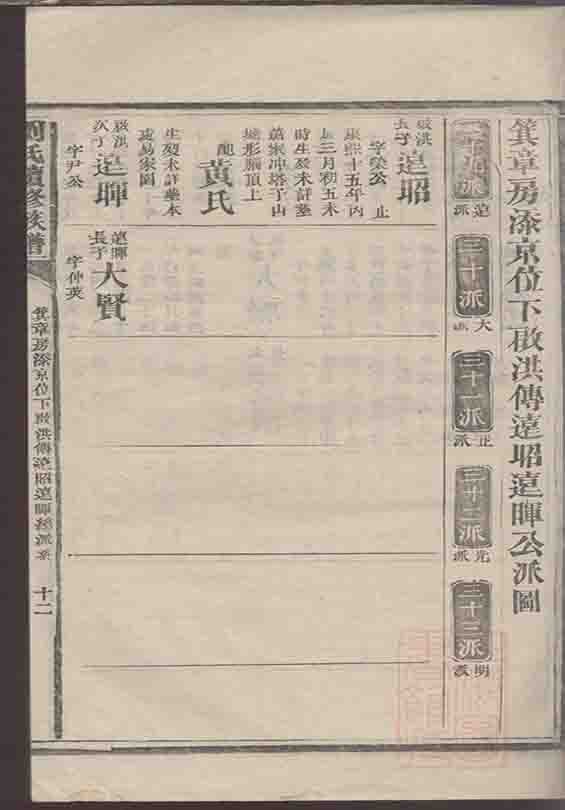 箕章房添京位下啟洪傳遠昭遠暉公派圖
二十九派
遠派
三十派
大派
三十一派
正派
三十二派
光派
三十三派
明派
啟洪長子 遠昭
字榮公 止
康熙十五年丙
辰三月初五未
時生歿未詳葬
蕭家冲塔子山
形腦頂上
配 黃氏
生歿未詳葬本
境易家園
啟洪次子 遠暉
字尹公
遠暉長子 大賢
字仲英
劉氏續修族譜
箕章房添京位下啟洪傳遠昭遠暉
派系
十二